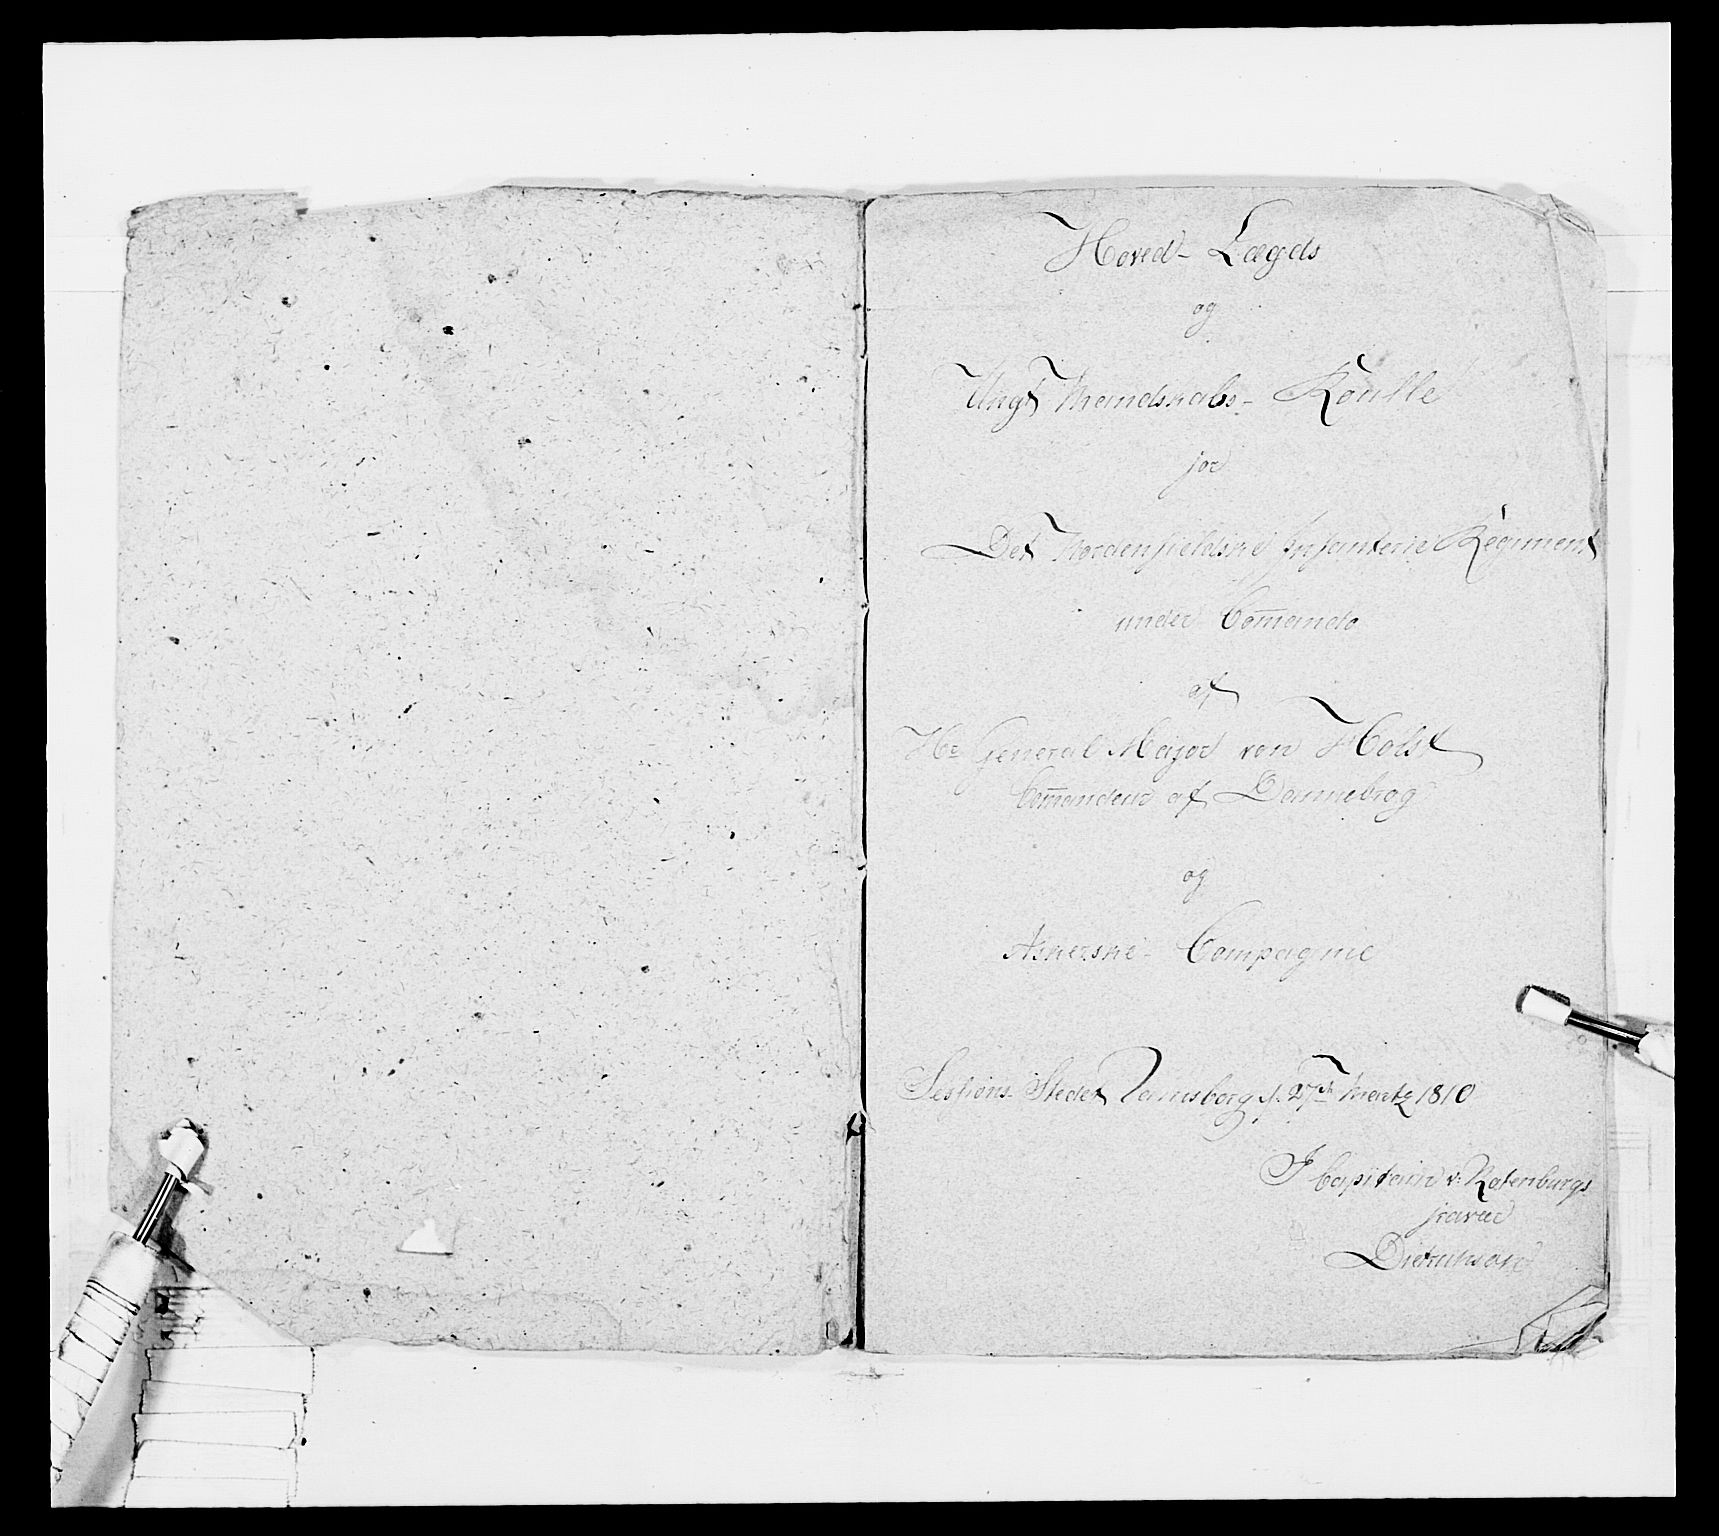 Hoved- Lægds
og
Ungt Mandskabs- Roulle
for
Det Nordenfieldske Infanterie Regiment
under Com̅ando
af
Hr General Major von Holst
Com̅andeur af Dannebrog
og
Askerske- Compagnie
Sessions- Stedet d. 27de Martz 1810
I Capitain v: Ratenburgs
fravær
Dietrichson